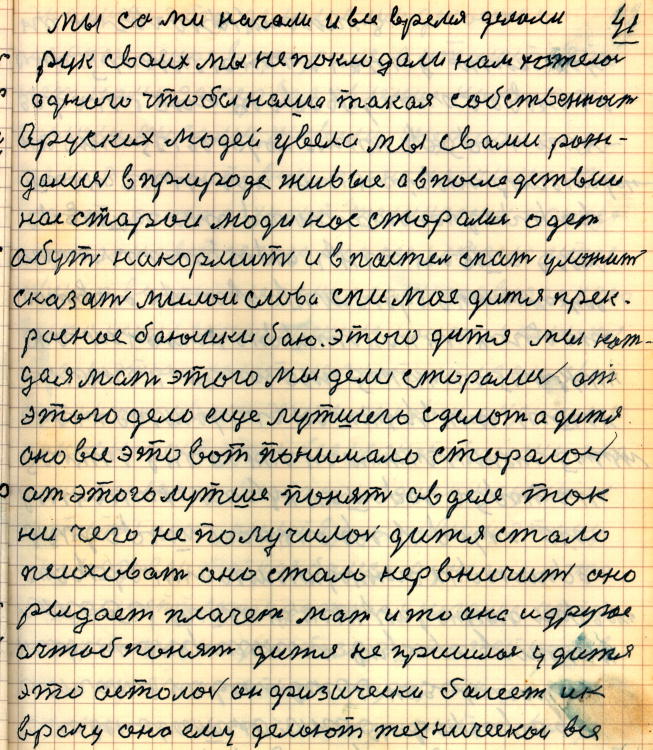 мы сами начали и все время делали 41
рук своих мы не покладали нам хотелос
одного чтобы наша такая собственност
в руских людей цвела мы с вами рож-
дались в природе живые а в последствии
нас старои люди нас старались одет
абут накормит и в пастел спат уложит
сказат милои слова спи мое дитя прек-
расное баюшки баю. этого дитя мы каж-
дая мат этого мы дели старались от
этого дело еще лутшего сделат а дитя
оно все это вот понимало старалос
от этого лутше понят а в деле так
ни чего не получилос дитя стало
психоват оно стало нервничит оно
рыдает плачет мат и то она и другое
а чтоб понят дитя не пришлос у дитя
это осталос он физически балеет и к
врачу оно ему делают технически все